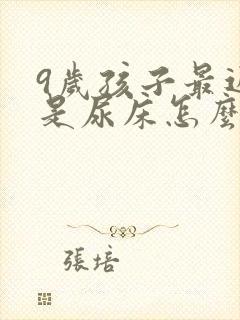 9歲孩子最近
是尿床怎麼
張培